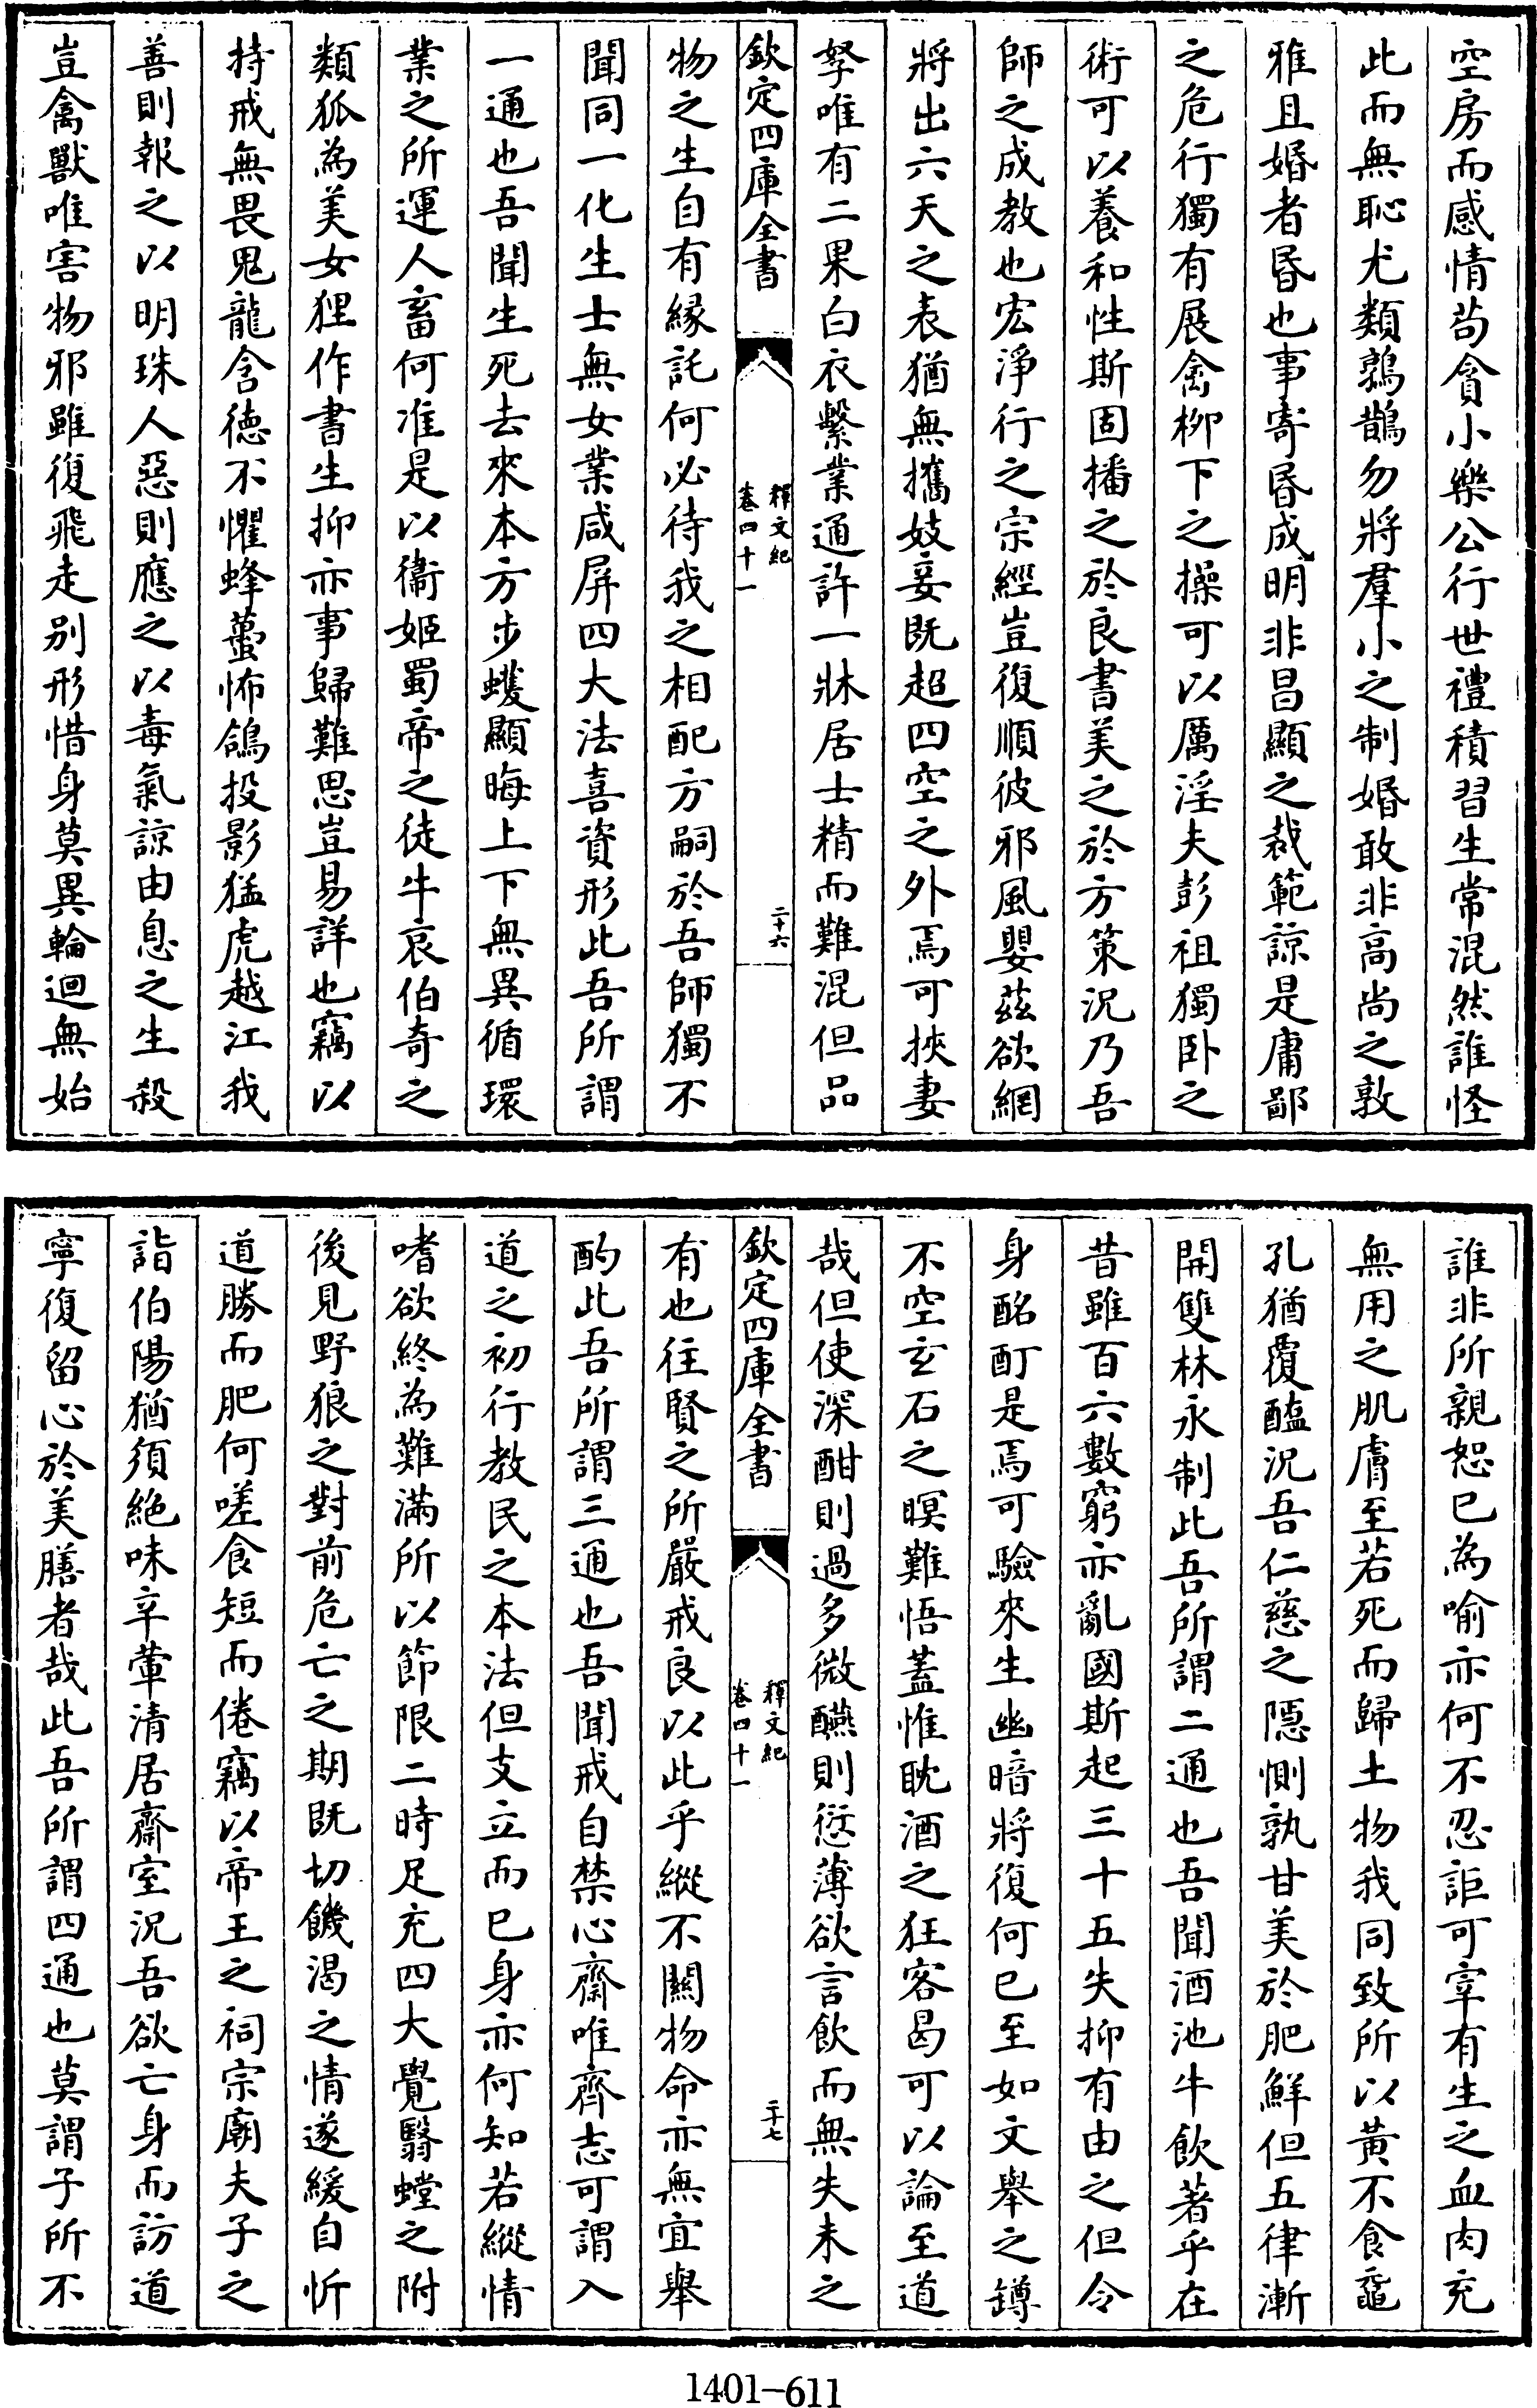 空房而感情苟貪小樂公行世禮積習生常混然誰怪
此而無恥尤類鶉鵲勿將羣小之制婚敢非高尚之敦
雅且婚者昏也事寄昏成明非昌顯之裁範諒是庸鄙
之危行獨有展禽柳下之操可以厲淫夫彭祖獨卧之
術可以養和性斯固播之於良書美之於方策況乃吾
師之成教也宏淨行之宗經豈復順彼邪風嬰茲欲網
將出六天之表猶無攜妓妾既超四空之外焉可挾妻
孥唯有二果白衣繫業通許一牀居士精而難混但品
欽定四庫全書
釋文紀
卷四十一
二十六
物之生自有縁託何必待我之相配方嗣於吾師獨不
聞同一化生士無女業咸屏四大法喜資形此吾所謂
一通也吾聞生死去來本方步蠖顯晦上下無異循環
業之所運人畜何准是以衞姬蜀帝之徒牛哀伯奇之
類狐為美女狸作書生抑亦事歸難思豈易詳也竊以
持戒無畏鬼龍含徳不懼蜂蠆怖鴿投影猛虎越江我
善則報之以明珠人惡則應之以毒氣諒由息之生殺
豈禽獸唯害物邪雖復飛走别形惜身莫異輪迴無始
誰非所親恕已為喻亦何不忍詎可宰有生之血肉充
無用之肌膚至若死而歸土物我同致所以黃不食黿
孔猶覆醢況吾仁慈之隱惻孰甘美於肥鮮但五律漸
開雙林永制此吾所謂二通也吾聞酒池牛飲著乎在
昔雖百六數窮亦亂國斯起三十五失抑有由之但令
身酩酊是焉可驗來生幽暗將復何已至如文舉之罇
不空玄石之瞑難悟蓋惟耽酒之狂客曷可以論至道
哉但使深酣則過多微醼則愆薄欲言飲而無失未之
欽定四庫全書
釋文紀
卷四十一
二十七
有也往賢之所嚴戒良以此乎縱不關物命亦無宜舉
酌此吾所謂三通也吾聞戒自禁心齋唯齊志可謂入
道之初行教民之本法但支立而已身亦何知若縱情
嗜欲終為難滿所以節限二時足充四大覺翳螳之附
後見野狼之對前危亡之期既切饑渴之情遂緩自忻
道勝而肥何嗟食短而倦竊以帝王之祠宗廟夫子之
詣伯陽猶須絕味辛葷清居齋室況吾欲亡身而訪道
寧復留心於美膳者哉此吾所謂四通也莫謂子所不
1401-611